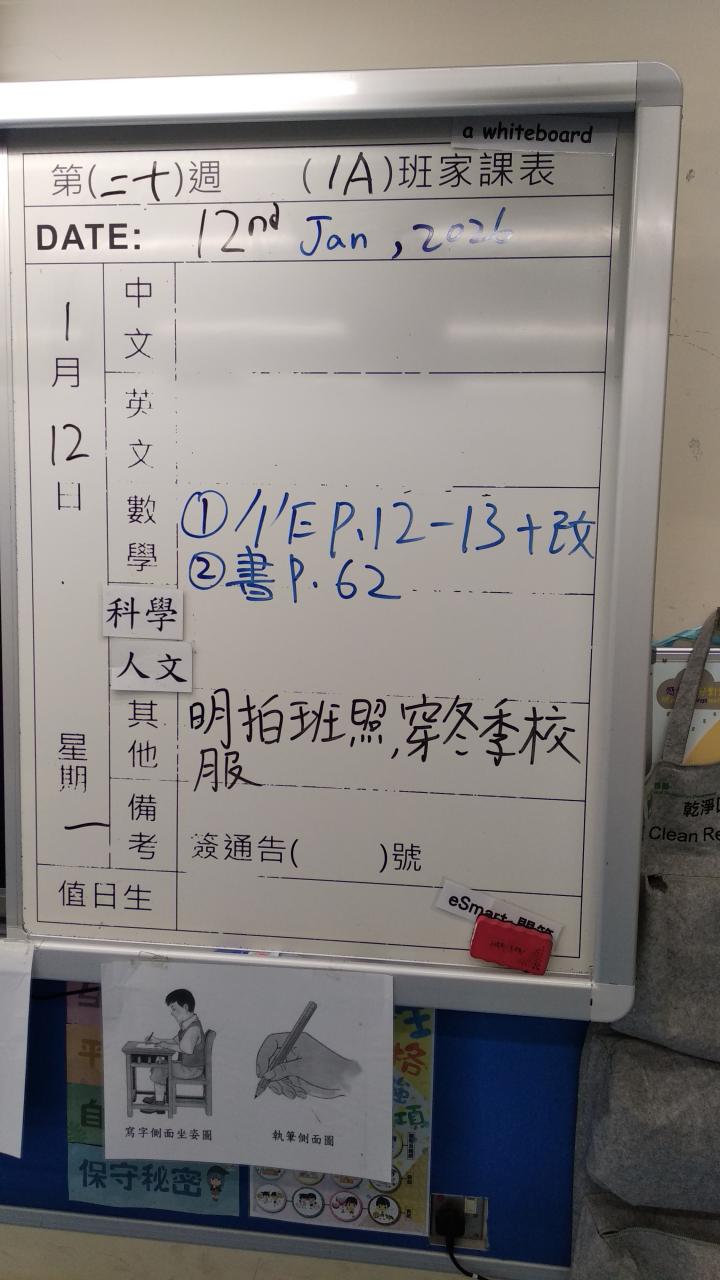 a whiteboard
第(二十)週 (1A)班家課表
DATE: 12nd Jan, 2026
1月12日
星期一
中文
英文
數學
①作 P.12-13+改
②書 P.62
科學
人文
其他
明拍班照,穿冬季校
服
備考
簽通告( )號
值日生
eSmart
乾淨
Clean Re
寫字側面坐姿圖
執筆側面圖
保守秘密